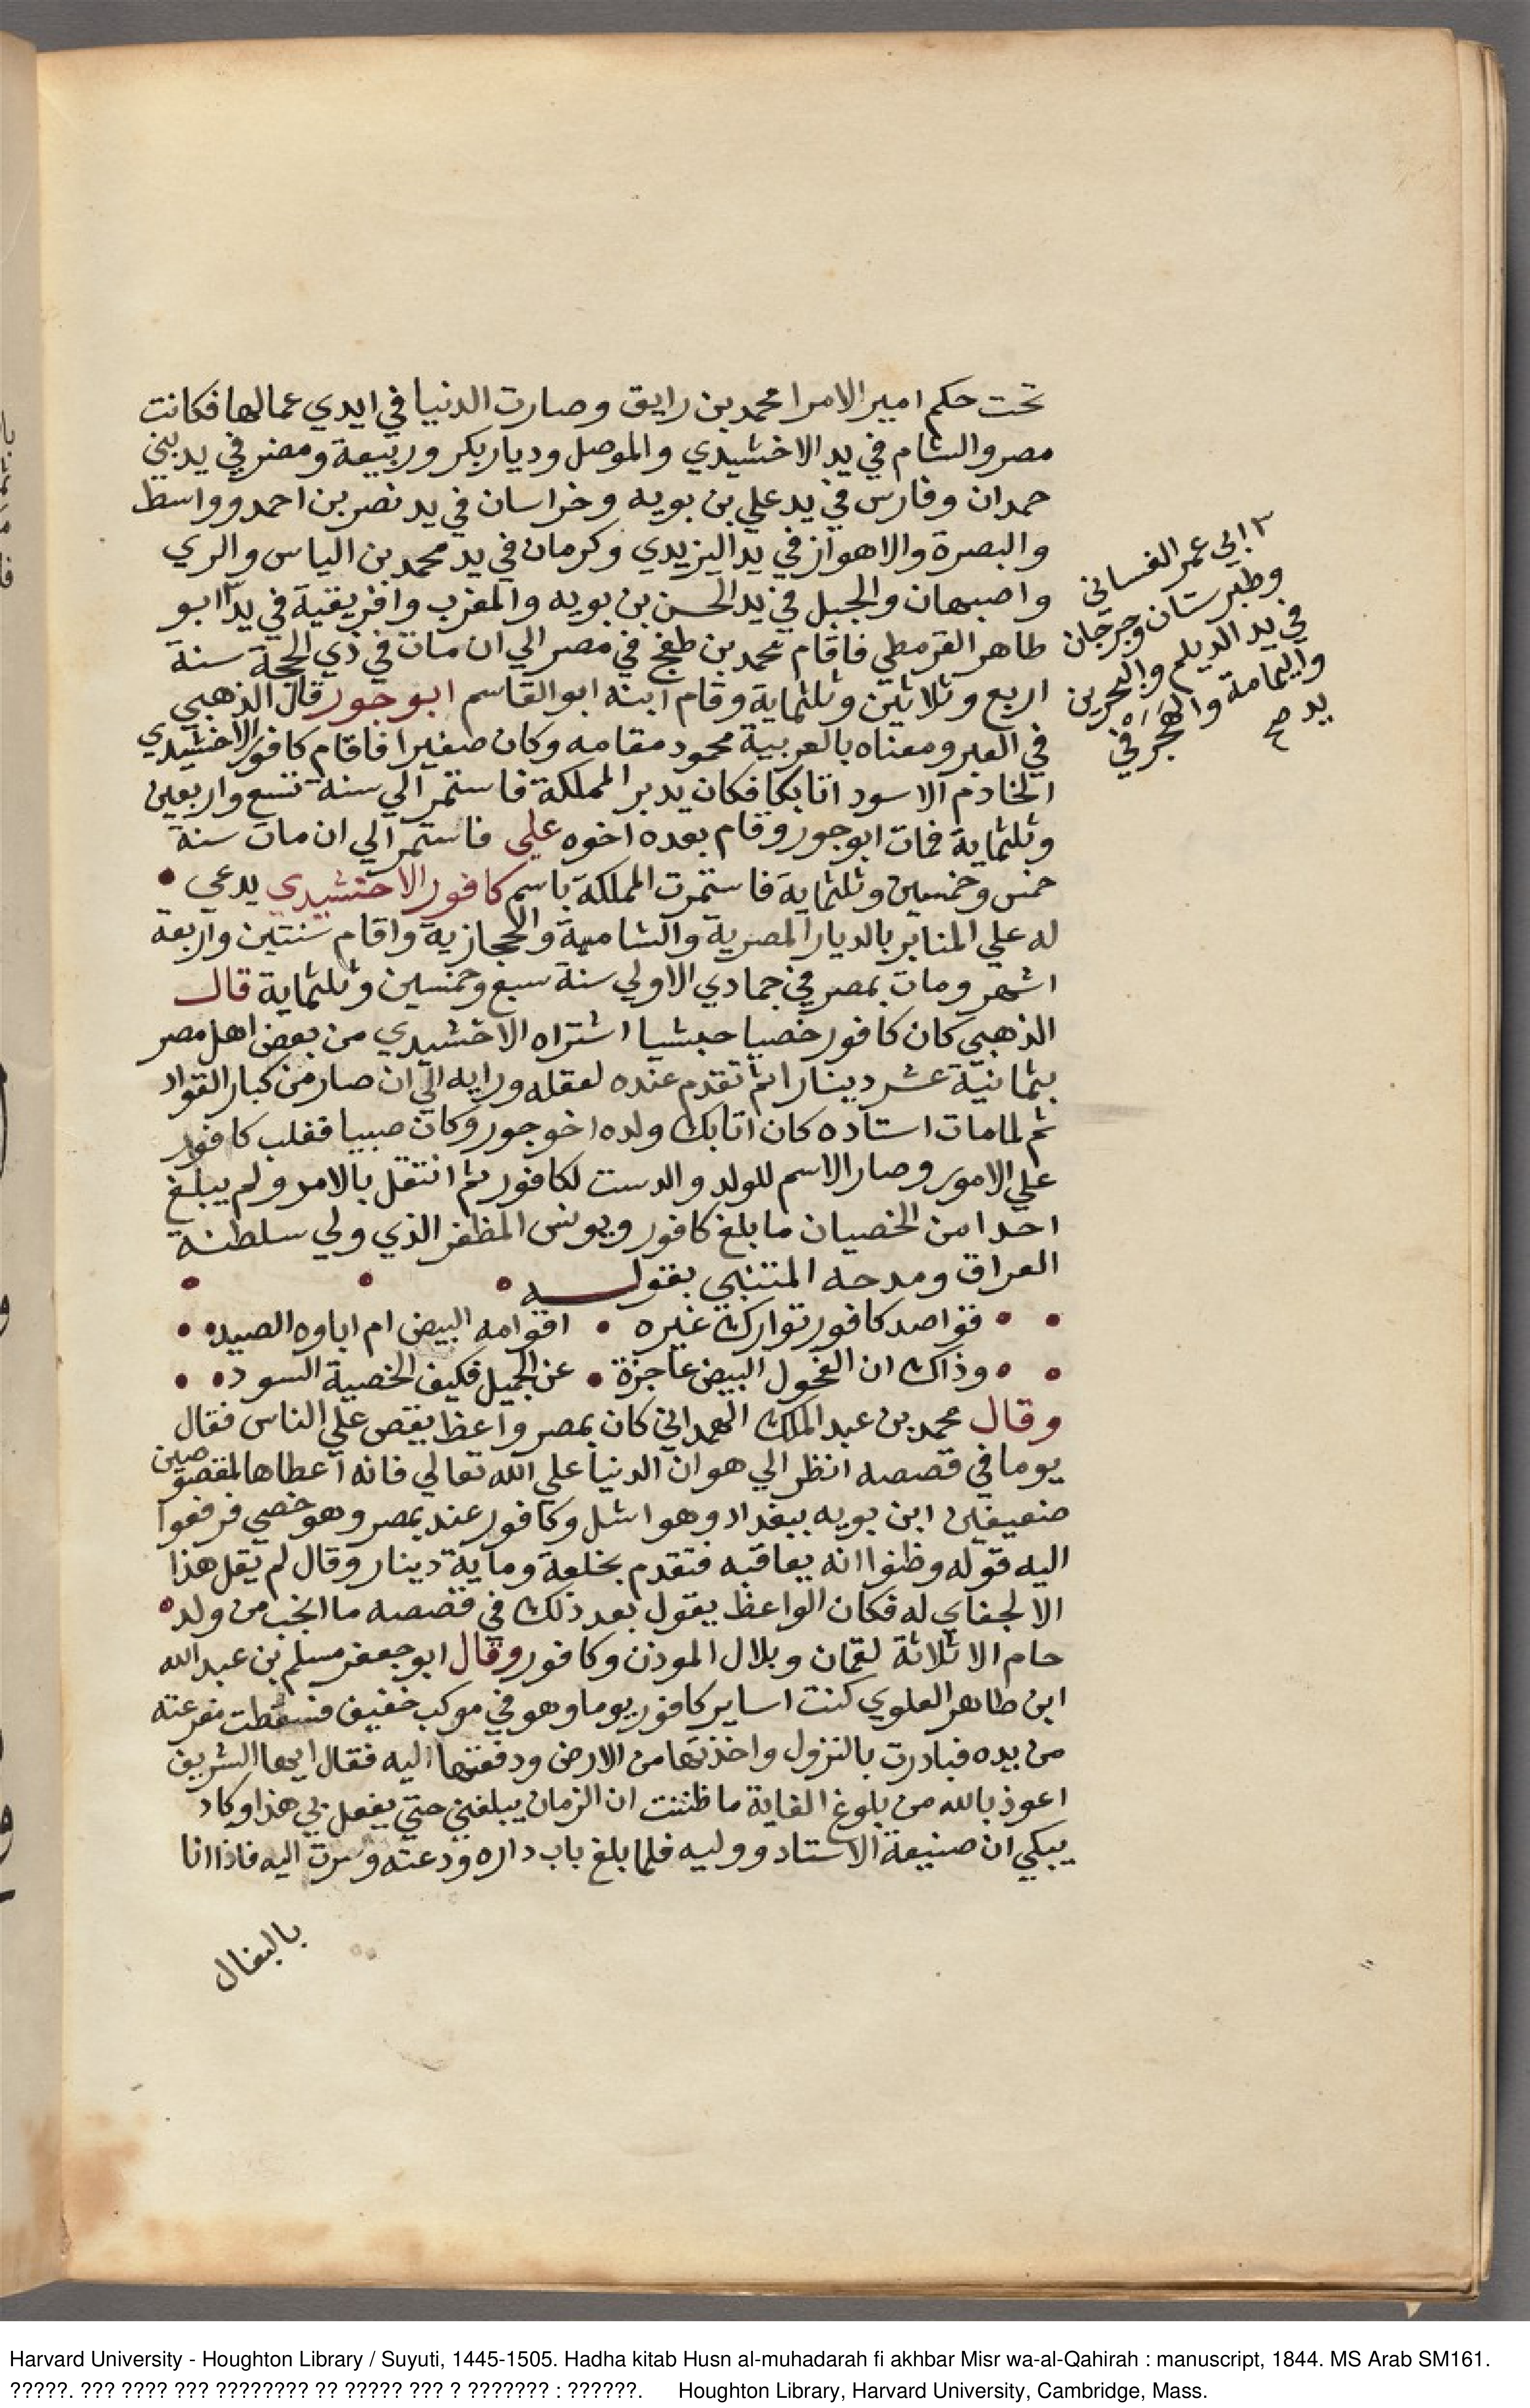 تحت حكم امير الامرا محمد بن رايق وصارت الدنيا في ايدي عمالها فكانت
مصر والشام في يد الاخشيدي والموصل وديار بكر وربيعة ومضر في يد بني
حمدان وفارس في يد علي بن بويه وخراسان في يد نصر بن احمد وواسط
والبصرة والاهواز في يد اليزيدي وكرمان في يد محمد بن الياس والري
واصبهان والجبل في يد الحسن بن بويه والمغرب وافريقية في يد ابو
طاهر القرمطي فاقام محمد بن طغج في مصر الي ان مات في ذي الحجة سنة
اربع وثلاثين وثلثماية وقام ابنه ابو القاسم ابوجور قال الذهبي
في العبر ومعناه بالعربية محمود مقامه وكان صغيرا فاقام كافور الاخشيدي
الخادم الاسود اتابكا فكان يدبر المملكة فاستمر الي سنة تسع واربعين
وثلثماية فمات ابوجور وقام بعده اخوه علي فاستمر الي ان مات سنة
خمس وخمسين وثلثماية فاستمرت المملكة باسم كافور الاخشيدي يدعي
له علي المنابر بالديار المصرية والشامية والحجازية واقام سنتين واربعة
اشهر ومات بمصر في جمادي الاولي سنة سبع وخمسين وثلثماية قال
الذهبي كان كافور خصيا حبشيا اشتراه الاخشيدي من بعض اهل مصر
بثمانية عشر دينارا ثم تقدم عنده لعقله ورايه الي ان صار من كبار القواد
ثم لما مات استاده كان اتابك ولده اخوجور وكان صبيا فغلب كافور
علي الامور وصار الاسم للولد والدست لكافور ثم انتقل بالامر ولم يبلغ
احدا من الخصيان ما بلغ كافور ويونس المظفر الذي ولي سلطنة
العراق ومدحه المتنبي بقوله
قواصد كافور توارك غيره • اقوامه البيض ام اباوه الصيد
وذاك ان الفحول البيض عاجزة • عن الجميل فكيف الخصية السود
وقال محمد بن عبد الملك الهمداني كان بمصر واعظ يقص علي الناس فقال
يوما في قصصه انظر الي هوان الدنيا علي الله تعالي فانه اعطاها لمقصوصين
ضعيفين ابن بويه ببغداد وهو اشل وكافور عند بمصر وهو خصي فرفعوا
اليه قوله وظنوا انه يعاقبه فتقدم بخلعة وماية دينار وقال لم يقل هذا
الا لجفاي له فكان الواعظ يقول بعد ذلك في قصصه ما انجب من ولد
حام الا ثلاثة لقمان وبلال الموذن وكافور وقال ابو جعفر مسلم بن عبد الله
ابن طاهر العلوي كنت اساير كافور يوما وهو في موكب خفيف فسقطت مقرعته
من يده فبادرت بالنزول واخذتها من الارض ودفعتها اليه فقال ايها الشريف
اعوذ بالله من بلوغ الغاية ما ظننت ان الزمان يبلغني حتي يفعل بي هذا وكاد
يبكي ان صنيعة الاستاد ووليه فلما بلغ باب داره ودعته وسرت اليه فاذا انا
بالبغال
ابي عمر الغساني
وطبرستان وجرجان
في يد الديلم والبحرين
واليمامة والهجر في
يد صح
Harvard University - Houghton Library / Suyuti, 1445-1505. Hadha kitab Husn al-muhadarah fi akhbar Misr wa-al-Qahirah : manuscript, 1844. MS Arab SM161.
?????. ??? ???? ??? ???????? ?? ????? ??? ? ??????? : ??????. Houghton Library, Harvard University, Cambridge, Mass.